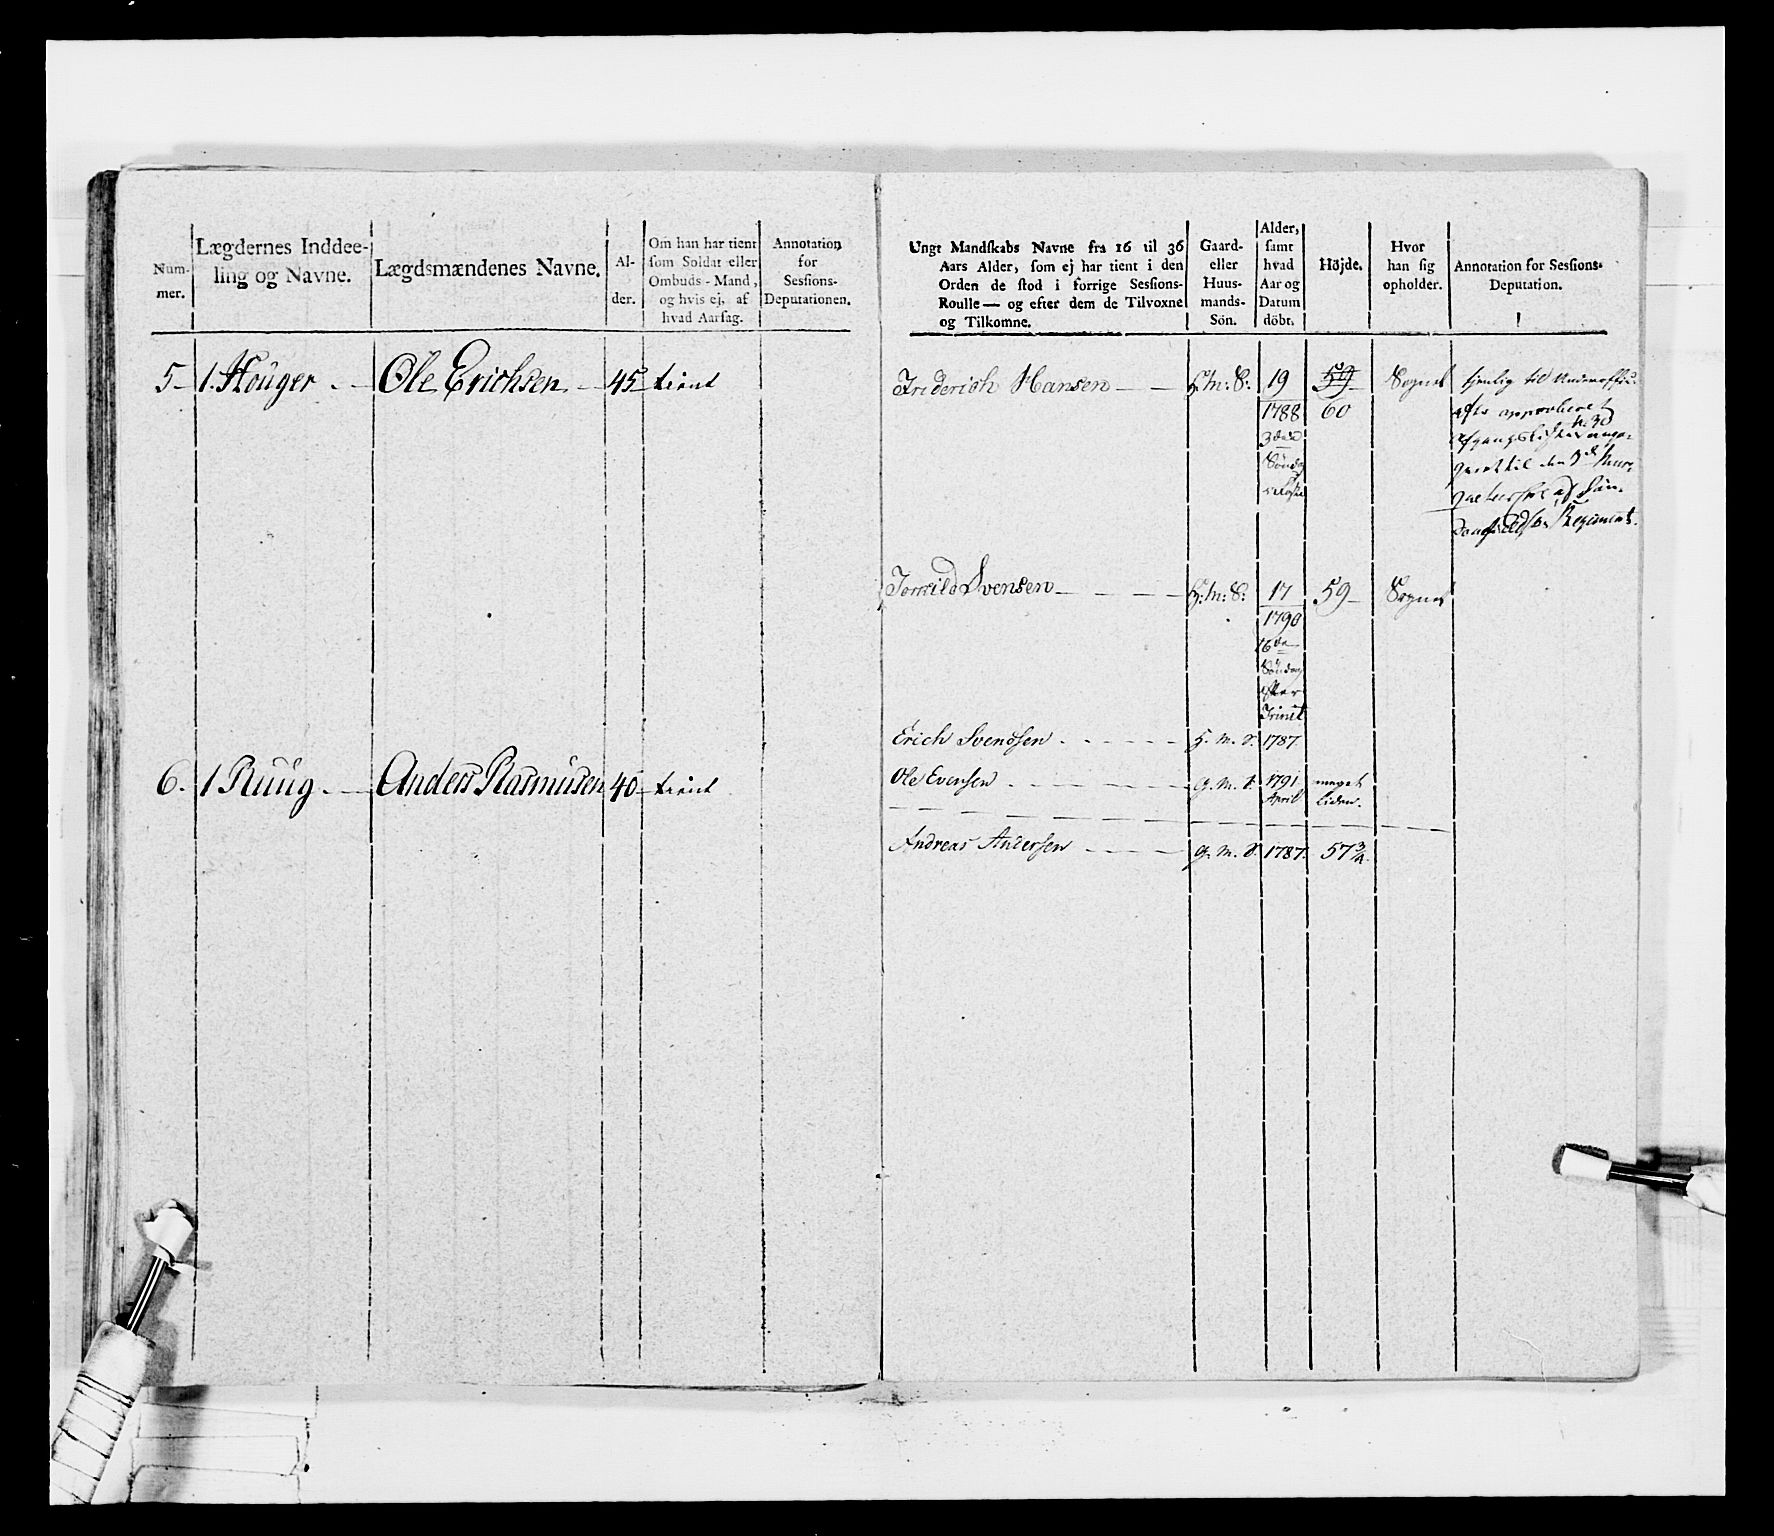 Num-
mer.
Lægdernes Inddee-
ling og Navne.
Lægdsmændenes Navne.
Al-
der.
Om han har tient
som Soldat eller
Ombuds-Mand,
og hvis ej, af
hvad Aarsag.
Annotation
for
Sessions-
Deputationen.
5 1. Houger Ole Erichsen 45 tient
6. 1 Ruug Anders Rasmusen 40 tient
Ungt Mandskabs Navne fra 16 til 36
Aars Alder, som ej har tient i den
Orden de stod i forrige Sessions-
Roulle — og efter dem de Tilvoxne
og Tilkomne.
Gaard-
eller
Huus-
mands-
Sön.
Alder,
samt
hvad
Aar og
Datum
döbt.
Höjde.
Hvor
han sig
opholder.
Annotation for Sessions-
Deputation.
Friderich Hansen H: m: S: 19 59 Sognet
1788 60
3die
Sönd
tienlig til Underoffic.
efter approberet
Afgangsliste No 30 enga-
geret til den 3de Mus-
af Sön-
Regiment.
Svensen H: m: S: 17 59 Sognet
1790
16de
Söndag
efter
Trinit
Erich Svendsen H. m. S. 1787.
Ole Evensen G. m. S. 1791 meget
April liden.
Andreas Andersen G. m. S. 1787. 57 3/4